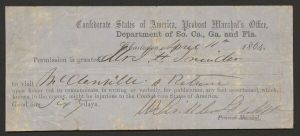 Confederate States of America, Provost Marshal's Office,
Department of So. Ca., Ga. and Fla.
April 11th 1864
Permission is granted
to visit McClenville & Return
upon honor not to communicate in writing or verbally, for publication, any fact ascertained, which,
known to the enemy, might be injurious to the Confederate States of America.
Good for days.
Provost Marshal.